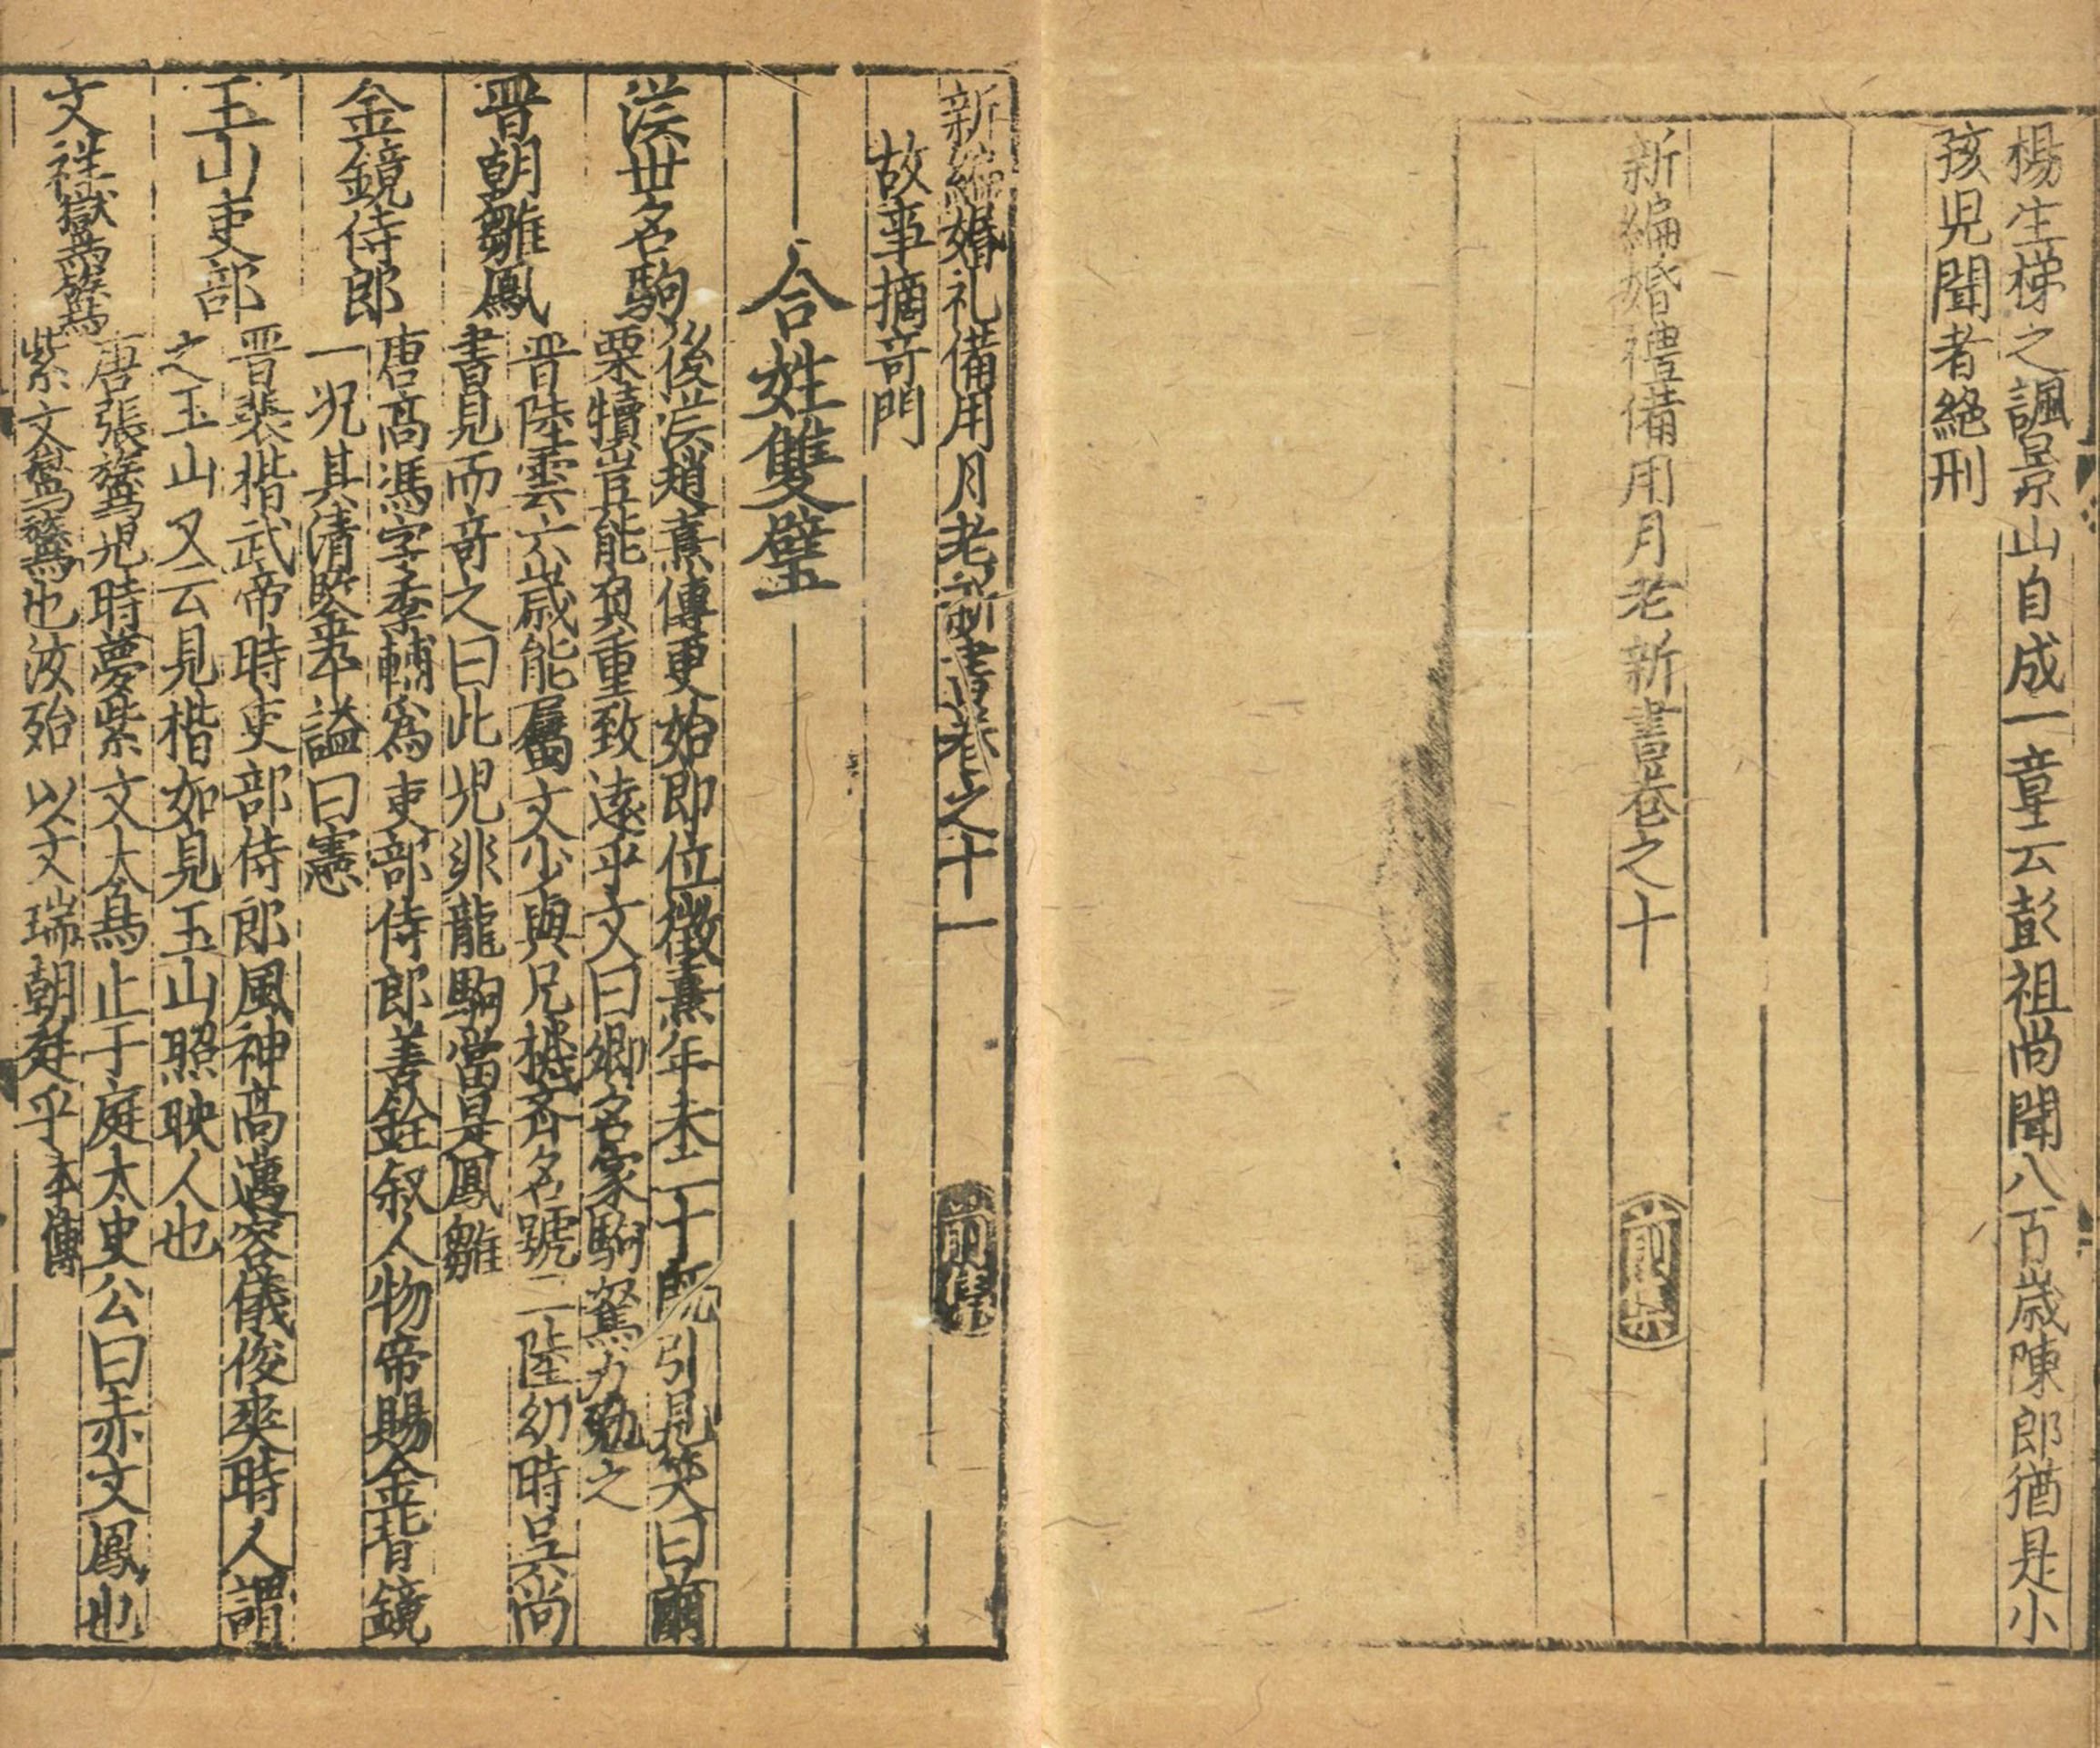 楊生梯之諷景山自成一章云彭祖尚聞八百歲陳郎猶是小
孩児聞者絶刑
新編婚禮備用月老新書卷之十 前集
新編婚礼備用月老新書卷之十一 前集
故事摘竒門
合姓雙璧
漢世名駒
後漢趙熹傳更始即位徵熹年未二十既引見笑曰繭
栗犢豈能負重致逺乎文曰卿名家駒努力勉之
晋朝雛鳳
晋陸雲六歲能屬文少與兄機齊名號二陸幻時吴尚
書見而竒之曰此児非龍駒當是鳳雛
金鏡侍郎
唐髙馮字季輔為吏部侍郎善銓叙人物帝賜金背鏡
一况其清鑒卒謚曰憲
玉山吏部
晋裴楷武帝時吏部侍郎風神髙邁容儀俊爽時人謂
之玉山又云見楷如見玉山照映人也
文祥鸑鷟
唐張鷟児時夢紫文大鳥止于庭大史公曰赤文鳳也
紫文鸑鷟也汝殆以文瑞朝廷乎本傳